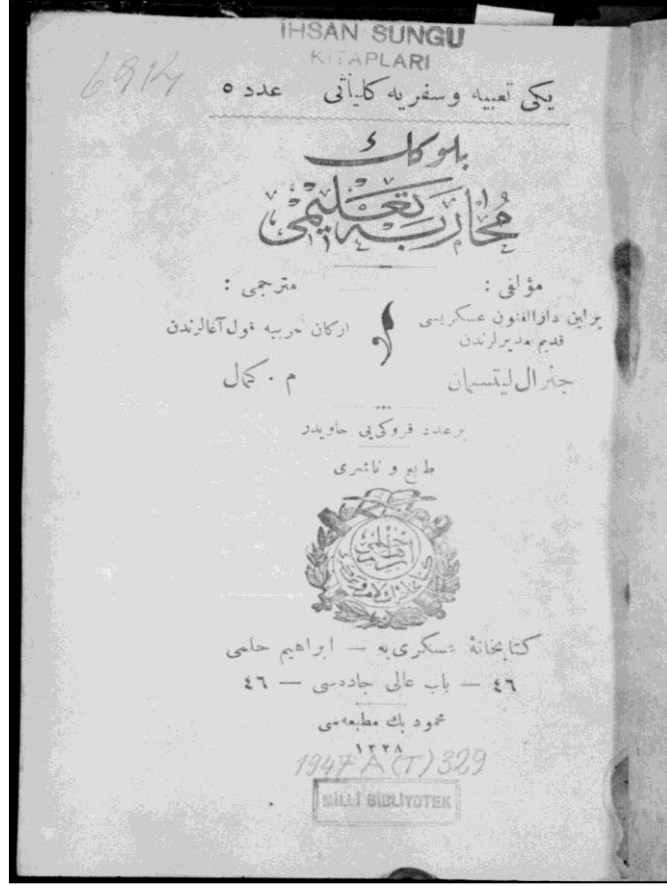 İHSAN SUNGU
KİTAPLARI
6914
يكی تعبيه و سفريه كلياتی عدد ٥
بلوكك
محاربه تعليمی
مؤلفی :
برلين دارالفنون عسكريسی
قديم مديرلرندن
جنرال ليتسمان
مترجمی :
اركان حربيه قول آغالرندن
م . كمال
بر عدد قروكی يی حاويدر
طابع و ناشری
كتابخانهٔ عسكری يه — ابراهيم حلمی
٤٦ — باب عالی جاده سی — ٤٦
محمود بك مطبعه سی
١٣٢٨
1947 A (T) 329
MİLLİ BİBLİYOTEK